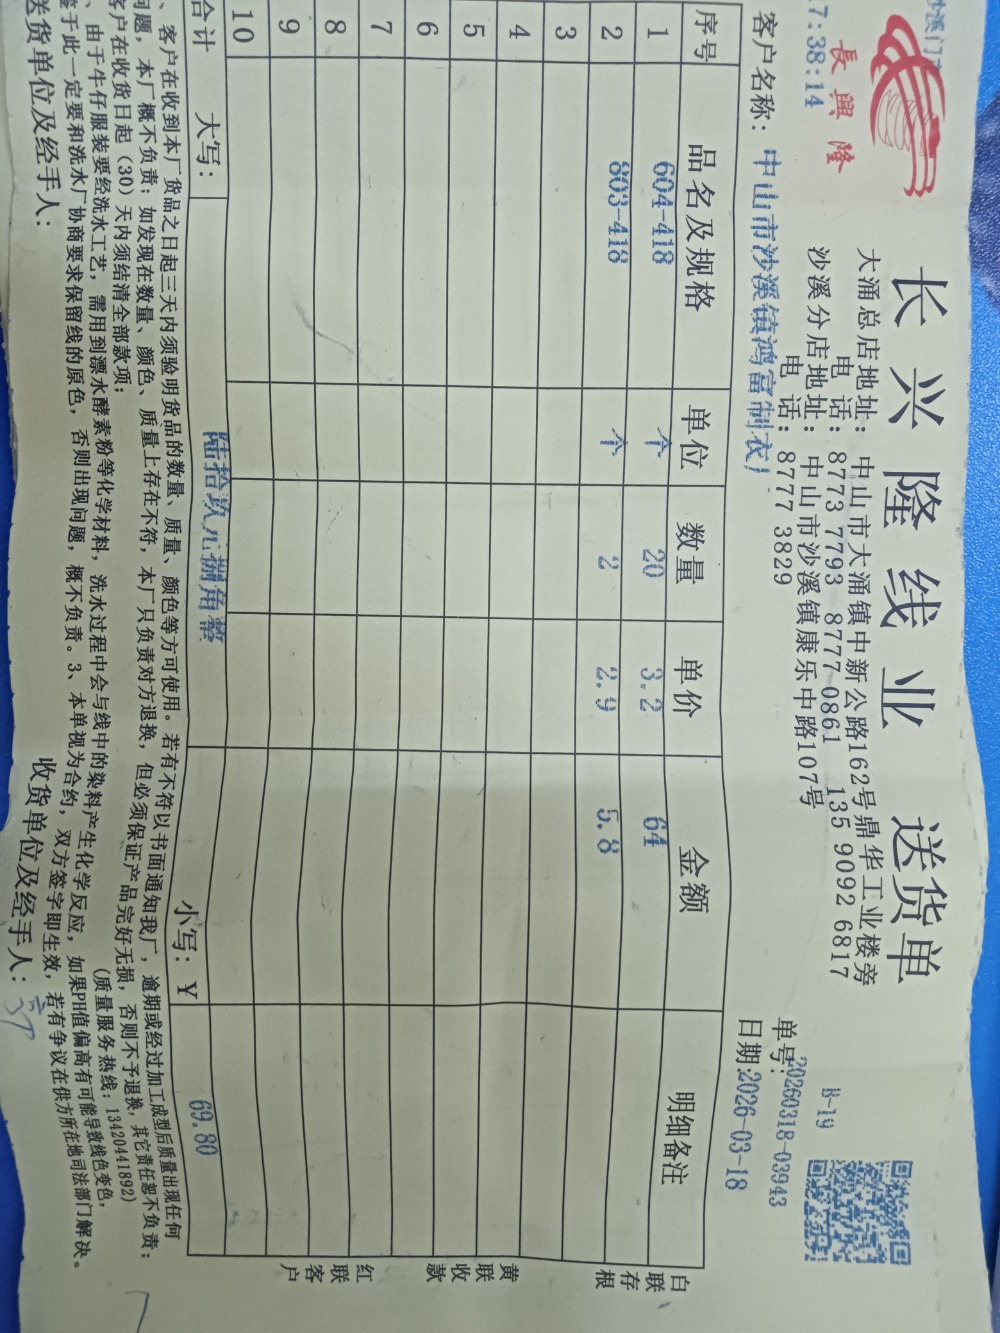 沙溪门
17:38:14
長興隆
长兴隆线业 送货单
大涌总店地址：中山市大涌镇中新公路162号鼎华工业楼旁
电 话：8773 7793 8777 0861 135 9092 6817
沙溪分店地址：中山市沙溪镇康乐中路107号
电 话：8777 3829
B-19
单号:20260318-03943
日期:2026-03-18
客户名称：中山市沙溪镇鸿富制衣厂
序号 品名及规格 单位 数量 单价 金额 明细备注
1 604-418 个 20 3.2 64
2 803-418 个 2 2.9 5.8
3
4
5
6
7
8
9
10
合计 大写： 陆拾玖元捌角整 小写：¥ 69.80
白联存根
黄联收款
红联客户
、客户在收到本厂货品之日起三天内须验明货品的数量、质量、颜色等方可使用。若有不符以书面通知我厂，逾期或经过加工成型后质量出现任何
问题，本厂概不负责；如发现在数量、颜色、质量上存在不符，本厂只负责对方退换，但必须保证产品完好无损，否则不予退换，其它责任恕不负责；
客户在收货日起（30）天内须结清全部款项； （质量服务热线：13420441892）
、由于牛仔服装要经洗水工艺，需用到漂水酵素粉等化学材料，洗水过程中会与线中的染料产生化学反应，如果PH值偏高有可能导致线色变色，
鉴于此一定要和洗水厂协商要求保留线的原色，否则出现问题，概不负责。3、本单视为合约，双方签字即生效，若有争议在供方所在地司法部门解决。
送货单位及经手人： 收货单位及经手人：